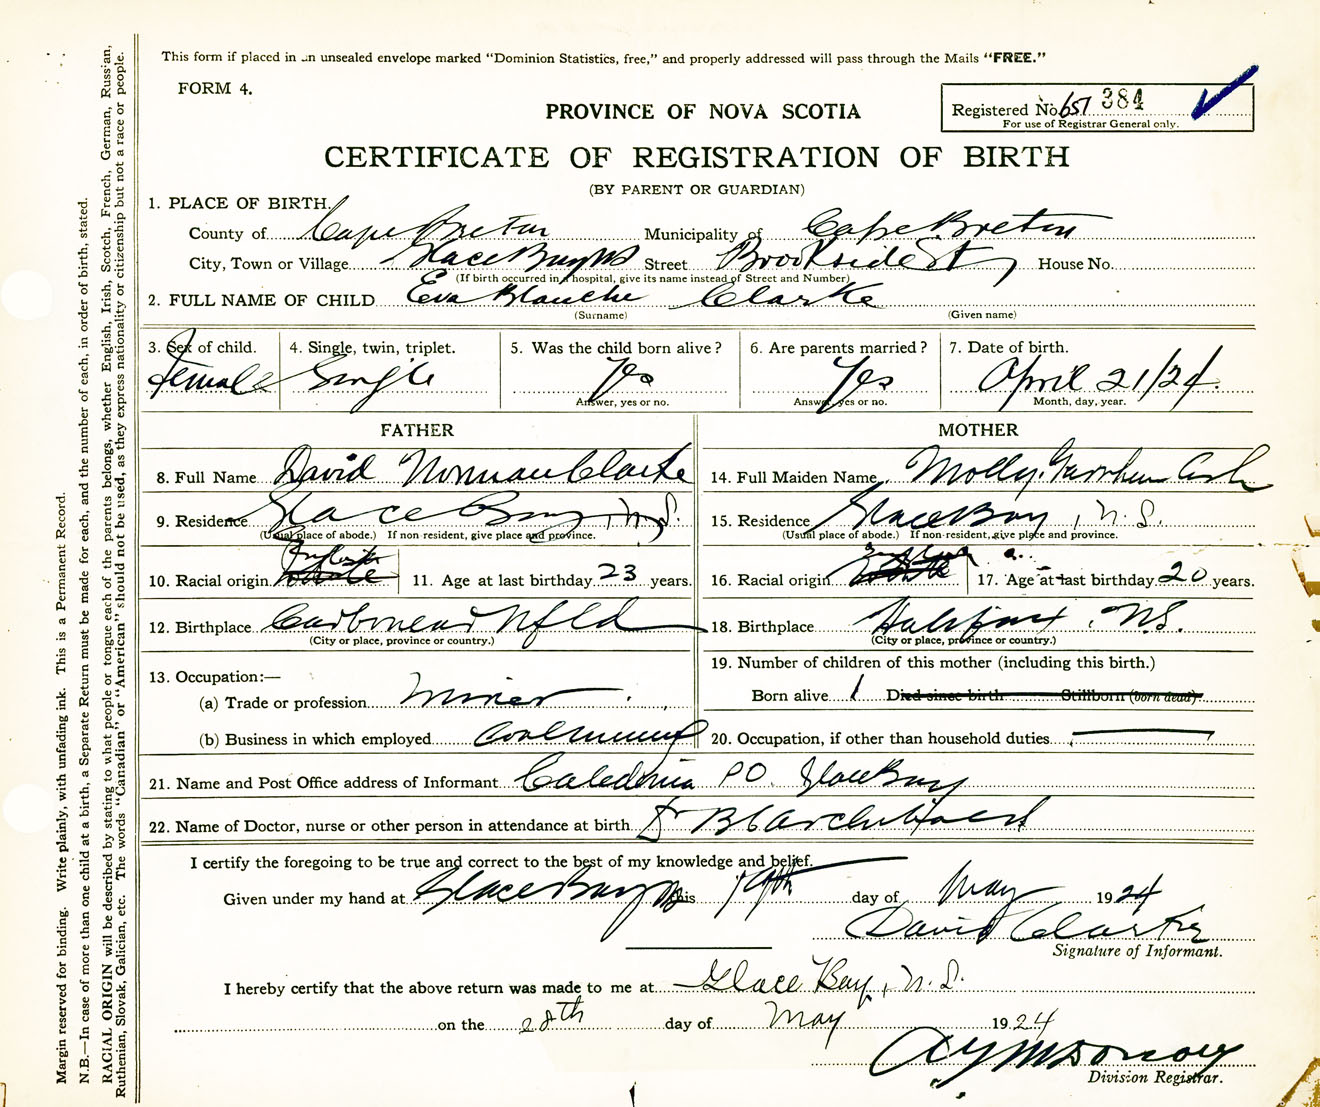 This form if placed in an unsealed envelope marked “Dominion Statistics, free,” and properly addressed will pass through the Mails “FREE.”
FORM 4.
Registered No. 651 384
For use of Registrar General only.
PROVINCE OF NOVA SCOTIA
CERTIFICATE OF REGISTRATION OF BIRTH
(BY PARENT OR GUARDIAN)
1. PLACE OF BIRTH.
County of Cape Breton Municipality of Cape Breton
City, Town or Village Glace Bay NS Street Brookside St House No.
(If birth occurred in a hospital, give its name instead of Street and Number)
2. FULL NAME OF CHILD Eva Blanche Clarke
(Surname) (Given name)
3. Sex of child. 4. Single, twin, triplet. 5. Was the child born alive? 6. Are parents married? 7. Date of birth.
female Single Yes Yes April 21/24
Answer, yes or no. Answer, yes or no. Month, day, year.
FATHER MOTHER
8. Full Name David Norman Clarke 14. Full Maiden Name Molly
9. Residence Glace Bay, N.S. 15. Residence Glace Bay, N.S.
(Usual place of abode.) If non-resident, give place and province. (Usual place of abode.) If non-resident, give place and province.
English English
10. Racial origin white 11. Age at last birthday 23 years. 16. Racial origin white 17. Age at last birthday 20 years.
12. Birthplace Carbonear Nfld 18. Birthplace Halifax, N.S.
(City or place, province or country.) (City or place, province or country.)
13. Occupation:— 19. Number of children of this mother (including this birth.)
(a) Trade or profession miner Born alive 1 Died since birth Stillborn (born dead)
(b) Business in which employed coal mining 20. Occupation, if other than household duties
21. Name and Post Office address of Informant Caledonia PO. Glace Bay
22. Name of Doctor, nurse or other person in attendance at birth Dr B Archibald
I certify the foregoing to be true and correct to the best of my knowledge and belief.
Given under my hand at Glace Bay NS this 19th day of May 1924
David Clarke
Signature of Informant.
I hereby certify that the above return was made to me at Glace Bay, N.S.
on the 28th day of May 1924
Division Registrar.
Margin reserved for binding. Write plainly, with unfading ink. This is a Permanent Record.
N.B.—In case of more than one child at a birth, a Separate Return must be made for each, and the number of each, in order of birth, stated.
RACIAL ORIGIN will be described by stating to what people or tongue each of the parents belongs, whether English, Irish, Scotch, French, German, Russian,
Ruthenian, Slovak, Galician, etc. The words “Canadian” or “American” should not be used, as they express nationality or citizenship but not a race or people.